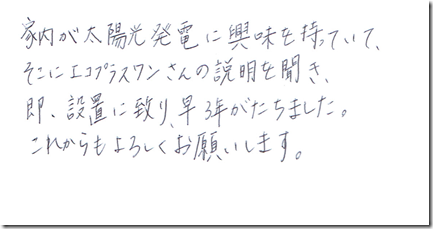 家内が太陽光発電に興味を持っていて、
そこにエコプラスワンさんの説明を聞き、
即、設置に致り、早3年がたちました。
これからもよろしくお願いします。